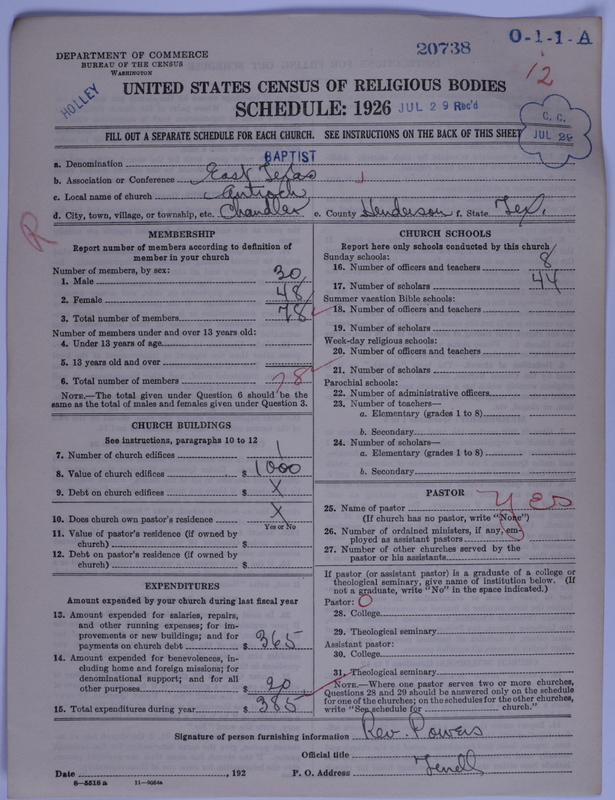 20738
O-1-1-A
12
DEPARTMENT OF COMMERCE
BUREAU OF THE CENSUS
WASHINGTON
HOLLEY
UNITED STATES CENSUS OF RELIGIOUS BODIES
SCHEDULE: 1926 JUL 29 REC'D
C. C.
JUL 29
FILL OUT A SEPARATE SCHEDULE FOR EACH CHURCH. SEE INSTRUCTIONS ON THE BACK OF THIS SHEET
a. Denomination BAPTIST
b. Association or Conference East Texas
c. Local name of church Antioch
d. City, town, village, or township, etc. Chandler e. County Henderson f. State Tex.
R
MEMBERSHIP
Report number of members according to definition of
member in your church
Number of members, by sex:
1. Male 30
2. Female 48
3. Total number of members 78
Number of members under and over 13 years old:
4. Under 13 years of age
5. 13 years old and over
6. Total number of members 78
NOTE.—The total given under Question 6 should be the
same as the total of males and females given under Question 3.
CHURCH BUILDINGS
See instructions, paragraphs 10 to 12
7. Number of church edifices 1
8. Value of church edifices $ 1000
9. Debt on church edifices $ X
10. Does church own pastor's residence X
Yes or No
11. Value of pastor's residence (if owned by
church) $
12. Debt on pastor's residence (if owned by
church) $
EXPENDITURES
Amount expended by your church during last fiscal year
13. Amount expended for salaries, repairs,
and other running expenses; for im-
provements or new buildings; and for
payments on church debt $ 365
14. Amount expended for benevolences, in-
cluding home and foreign missions; for
denominational support; and for all
other purposes $ 20
15. Total expenditures during year $ 385
CHURCH SCHOOLS
Report here only schools conducted by this church
Sunday schools:
16. Number of officers and teachers 8
17. Number of scholars 44
Summer vacation Bible schools:
18. Number of officers and teachers
19. Number of scholars
Week-day religious schools:
20. Number of officers and teachers
21. Number of scholars
Parochial schools:
22. Number of administrative officers
23. Number of teachers—
a. Elementary (grades 1 to 8)
b. Secondary
24. Number of scholars—
a. Elementary (grades 1 to 8)
b. Secondary
PASTOR
25. Name of pastor Yes
(If church has no pastor, write "None")
26. Number of ordained ministers, if any, em-
ployed as assistant pastors
27. Number of other churches served by the
pastor or his assistants
If pastor (or assistant pastor) is a graduate of a college or
theological seminary, give name of institution below. (If
not a graduate, write "No" in the space indicated.)
Pastor: O
28. College
29. Theological seminary
Assistant pastor:
30. College
31. Theological seminary
NOTE.—Where one pastor serves two or more churches,
Questions 28 and 29 should be answered only on the schedule
for one of the churches; on the schedules for the other churches,
write "See schedule for church."
Signature of person furnishing information Rev. Powers
Official title
Date , 192 P. O. Address
8—5516 a